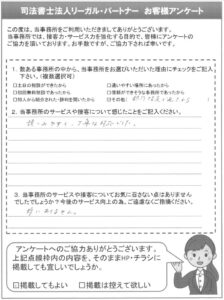 司法書士法人リーガル・パートナー お客様アンケート
この度は、当事務所をご利用いただきましてありがとうございます。
当事務所では、接客力・サービス力を強化する目的で、皆様にアンケートの
ご協力を頂いております。お手数ですが、ご協力下されば幸いです。
1. 数ある事務所の中から、当事務所をお選びいただいた理由にチェックをご記入
下さい。(複数選択可)
□土日の相談ができたから
□通いやすい場所にあったから
□初回無料相談であったから
□信頼ができそうな事務所であったから
□知人から紹介された・評判を聞いたから
□その他(
2. 当事務所のサービスや接客について感じたことをご記入ください。
3. 当事務所のサービスや接客についてお気に召さない点はありません
でしたでしょうか?今後のサービス向上の為、ご遠慮なくご指摘ください。
特にありません。
アンケートへのご協力ありがとうございます。
上記点線枠内の内容を、そのままHP・チラシに
掲載しても宜しいでしょうか。
□掲載してもよい
□掲載は控えて欲しい